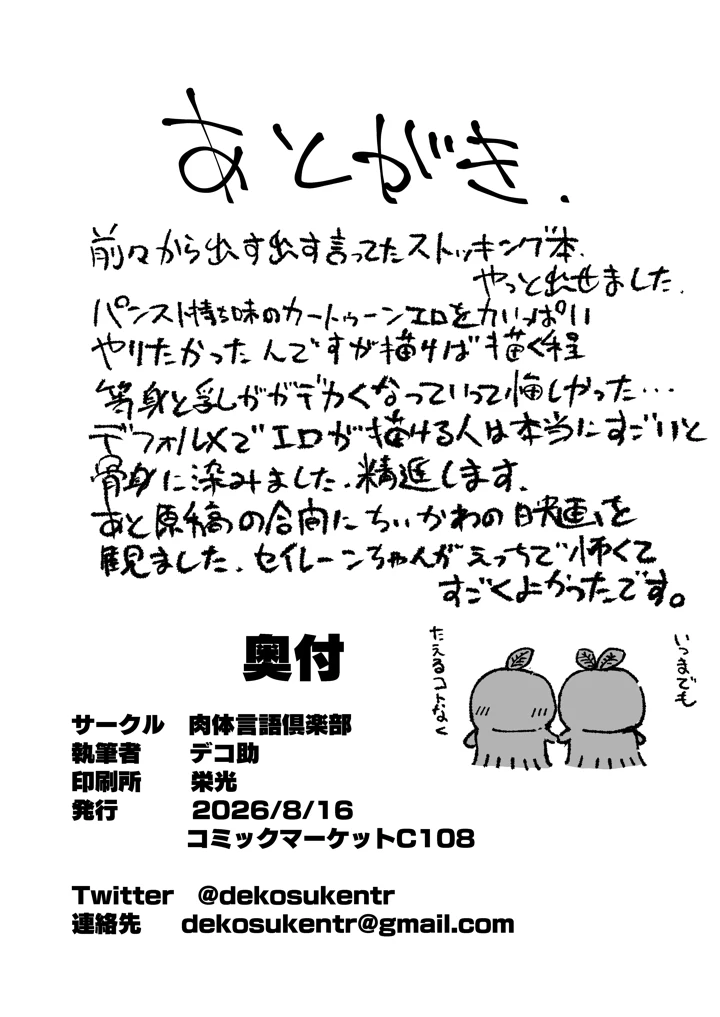 あとがき.
前々から出す出す言ってたストッキング本.
やっと出せました.
パンスト情ち味のカートゥーンエロを力いっぱい
やりたかったんですが描けば描く程
等身と乳ががデカくなっていって悔しかった…
デフォルメでエロが描ける人は本当にすごいと
骨身に染みました.精進します.
あと原稿の合間にちいかわの映画を
観ました.セイレーンちゃんがえっちで怖くて
すごくよかったです。
いつまでも
たえるコトなく
奥付
サークル 肉体言語倶楽部
執筆者 デコ助
印刷所 栄光
発行 2026/8/16
コミックマーケットC108
Twitter @dekosukentr
連絡先 dekosukentr@gmail.com